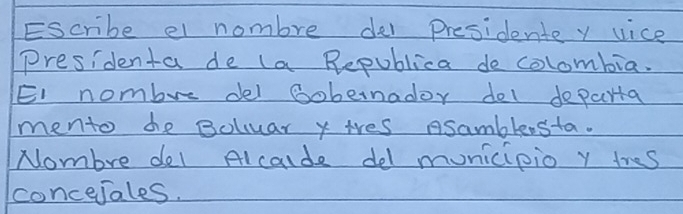 Escribe el nombre del Presidente y vice
Presidenta de la Republica de colombia.
El nombre del Gobernador del departa
mento de Bolivar y tres Asambleista.
Nombre del Alcalde del municipio y tres
concejales.